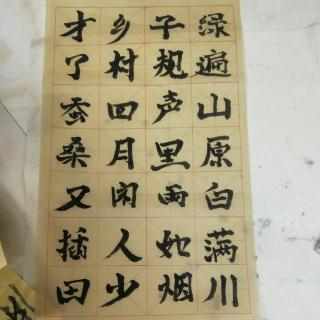 绿遍山原白满川
子规声里雨如烟
乡村四月闲人少
才了蚕桑又插田